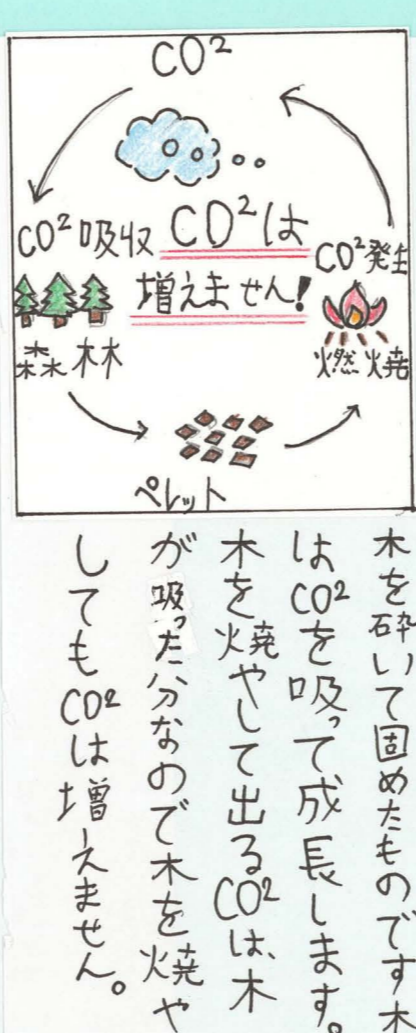 CO²
CO²吸収
CO²は
増えません!
CO²発生
森林
燃焼
ペレット
木を砕いて固めたものです木
はCO²を吸って成長します。
木を焼やして出るCO²は、木
が吸った分なので木を焼や
してもCO²は増えません。